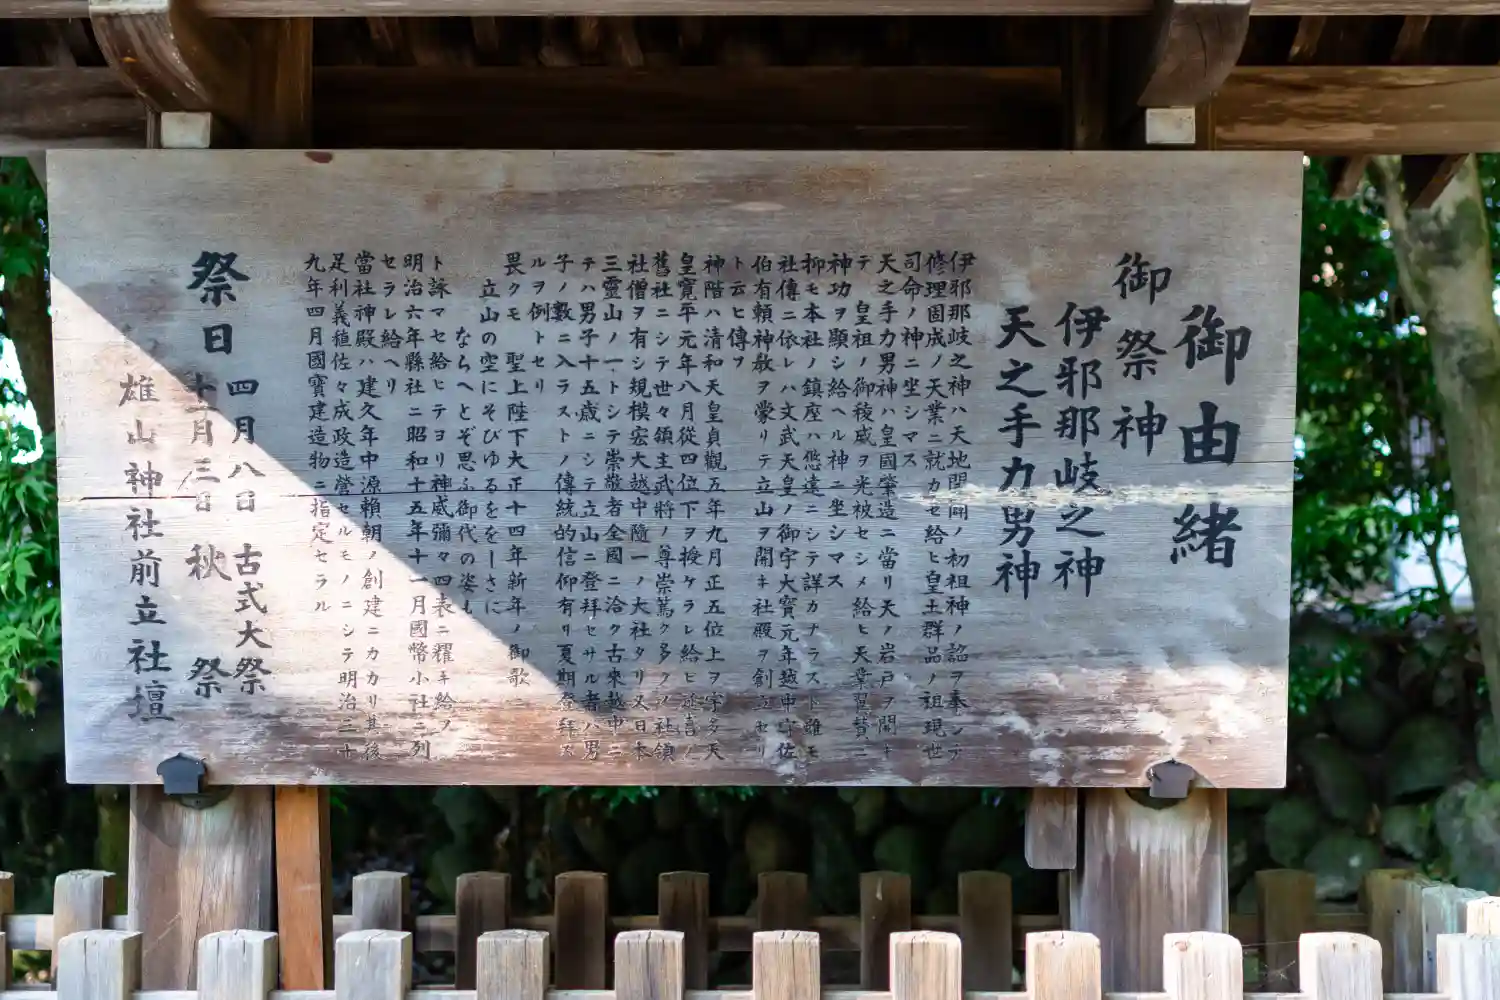 御由緒
御祭神
伊邪那岐之神
天之手力男神
伊邪那岐之神ハ天地開闢ノ初祖神ノ詔ヲ奉シテ
修理固成ノ天業ニ就カセ給ヒ皇土群品ノ祖現世
司命ノ神ニ坐シマス
天之手力男神ハ皇國肇造ニ當リ天ノ岩戸ヲ開キ
テ 皇祖ノ御稜威ヲ光被セシメ給ヒ天業翼賛ニ
神功ヲ顯シ給ヘル神ニ坐シマス
抑モ本社ノ鎮座ハ悠遠ニシテ詳カナラスト雖モ
社傳ニ依レハ文武天皇ノ御宇大寶元年越中守佐
伯有頼神教ヲ蒙リテ立山ヲ開キ社殿ヲ創立セリ
ト云ヒ傳ヲ
神階ハ清和天皇貞觀五年九月正五位上ヲ宇多天
皇寛平元年八月從四位下ヲ授ケラレ給ヒ延喜ノ
舊社ニシテ世々領主武將ノ尊崇篤ク多クノ社領
社僧ヲ有シ規模宏大越中隨一ノ大社タリス日本
三靈山ノ一トシテ崇敬者全國ニ洽ク古來越中ニ
テハ男子十五歳ニシテ立山ニ登拜セサル者ハ男
子ノ數ニ入ラストノ傳統的信仰有リ夏期登拜ス
ルヲ例トセリ
畏クモ 聖上陛下大正十四年新年ノ御歌ニ
立山の空にそびゆるををしさに
ならへとぞ思ふ御代の姿も
ト詠マセ給ヒテヨリ神威彌々四表ニ耀キ給ノ
明治六年縣社ニ昭和十五年十一月國幣小社ニ列
セラレ給ヘリ
當社神殿ハ建久年中源賴朝ノ創建ニカカリ其後
足利義稙佐々成政造營セルモノニシテ明治三十
九年四月國寶建造物ニ指定セラル
祭日 四月八日 古式大祭
十一月三日 秋祭
雄山神社前立社壇